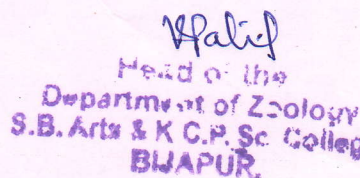 Head of the
Department of Zoology
S.B. Arts & K C.P. Sc Colleg
BIJAPUR.